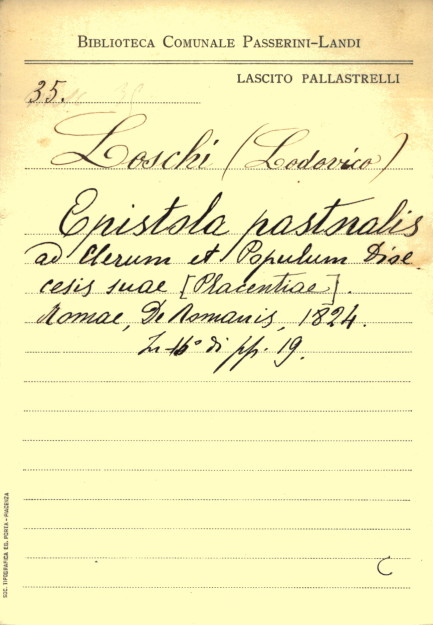 BIBLIOTECA COMUNALE PASSERINI-LANDI
LASCITO PALLASTRELLI
35.
Loschi (Lodovico)
Epistola pastoralis
ad Clerum et Populum Dioe-
cesis suae [Placentiae].
Romae, De Romanis, 1824.
In 16° di pp. 19.
C
SOC. TIPOGRAFICA ED. PORTA - PIACENZA